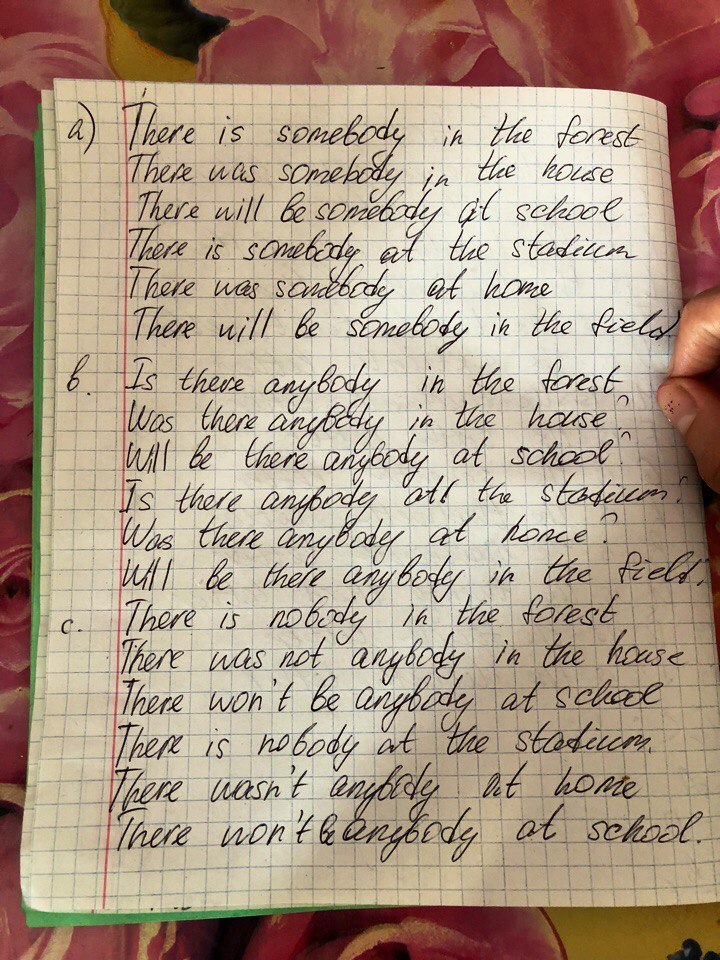 a) There is somebody in the forest
There was somebody in the house
There will be somebody at school
There is somebody at the stadium
There was somebody at home
There will be somebody in the field.
b. Is there anybody in the forest
Was there anybody in the house?
Will be there anybody at school?
Is there anybody att the stadium?
Was there anybody at home?
Will be there anybody in the field?
c. There is nobody in the forest
There was not anybody in the house
There won't be anybody at school
There is nobody at the stadium.
There wasn't anybody at home
There won't be anybody at school.